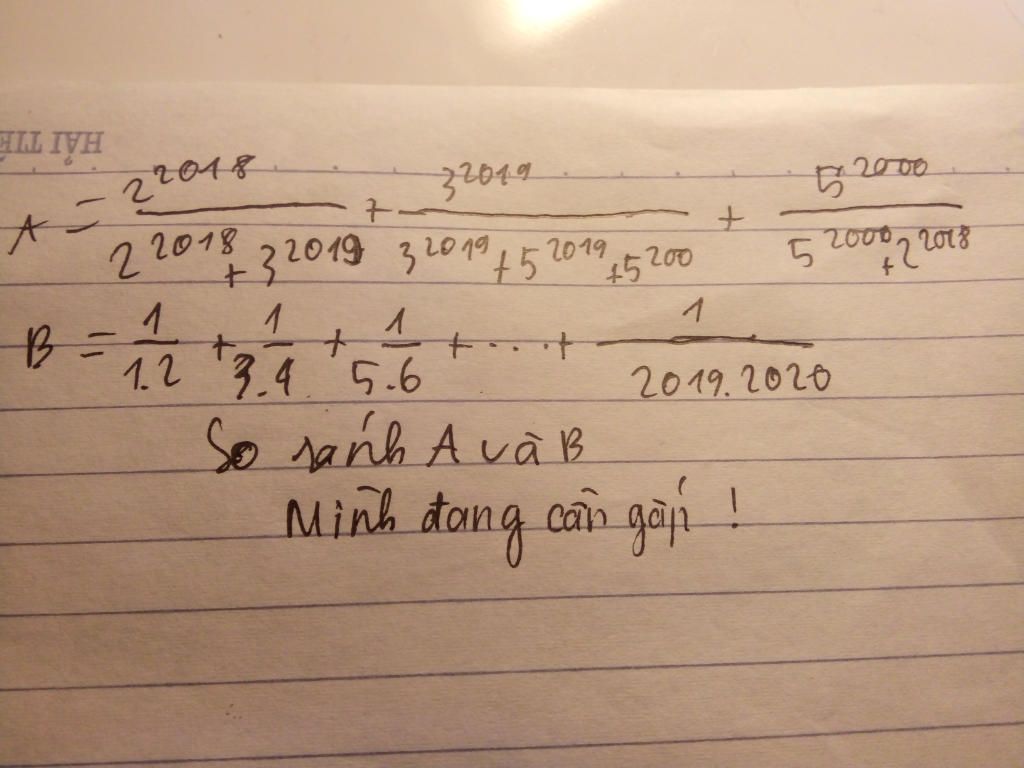 HẢI TIẾ
A = 2^2018 / (2^2018 + 3^2019) + 3^2019 / (3^2019 + 5^2019 + 5^200) + 5^2000 / (5^2000 + 2^2018)
B = 1/1.2 + 1/3.4 + 1/5.6 + .... + 1/2019.2020
So sánh A và B
Mình đang cần gấp !